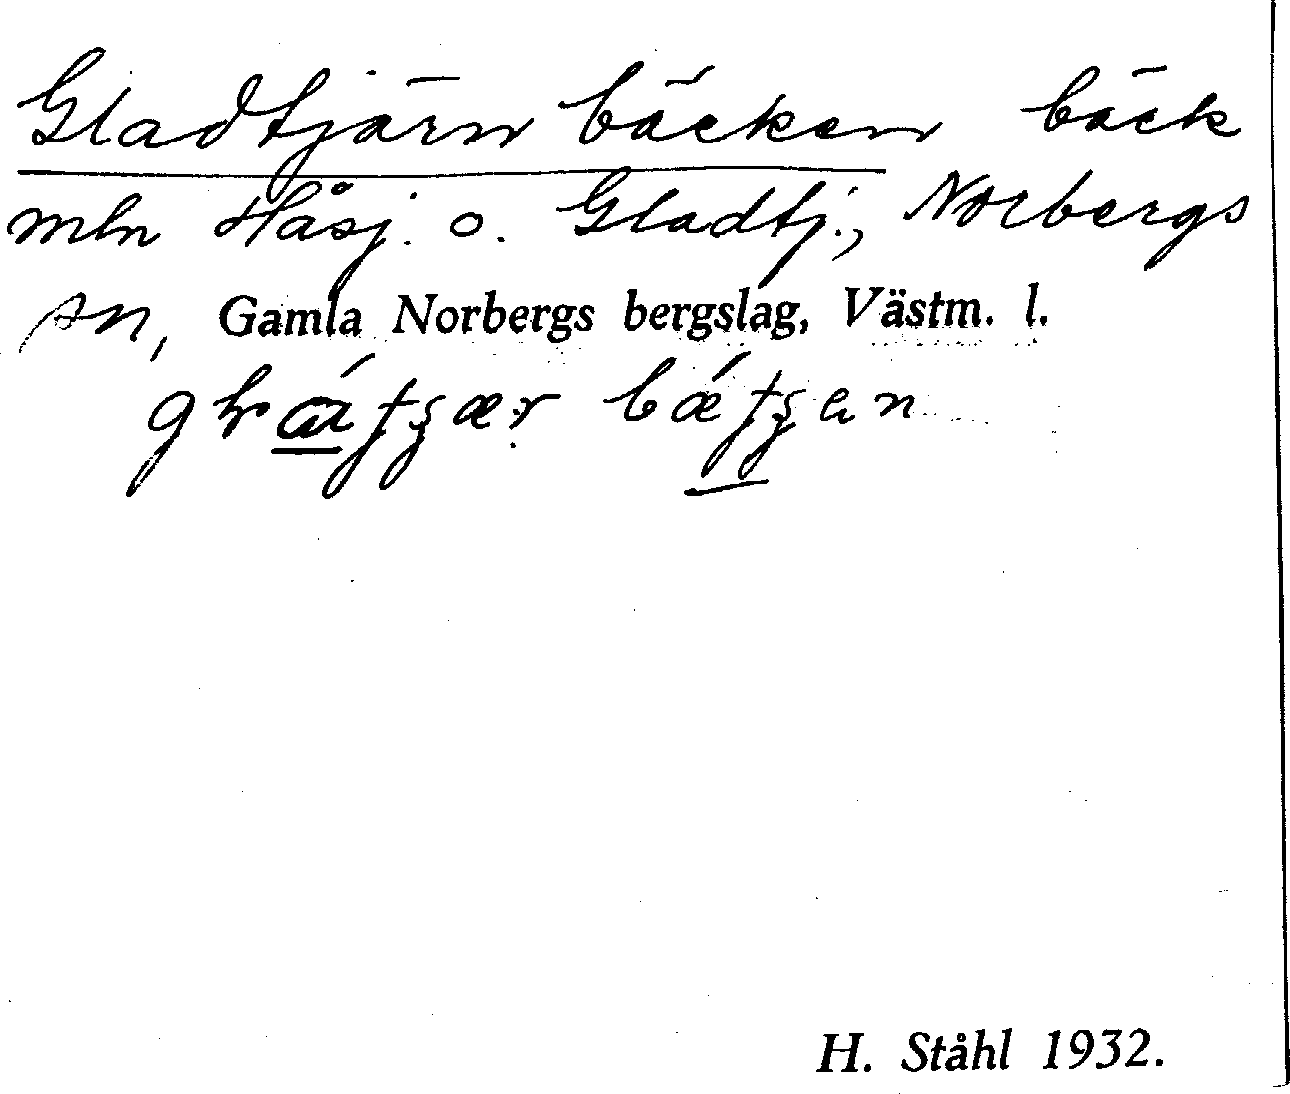 Gladtjärn bäcken bäck
mln Håsj. o. Gladtj., Norbergs
sn, Gamla Norbergs bergslag, Västm. l.
H. Ståhl 1932.